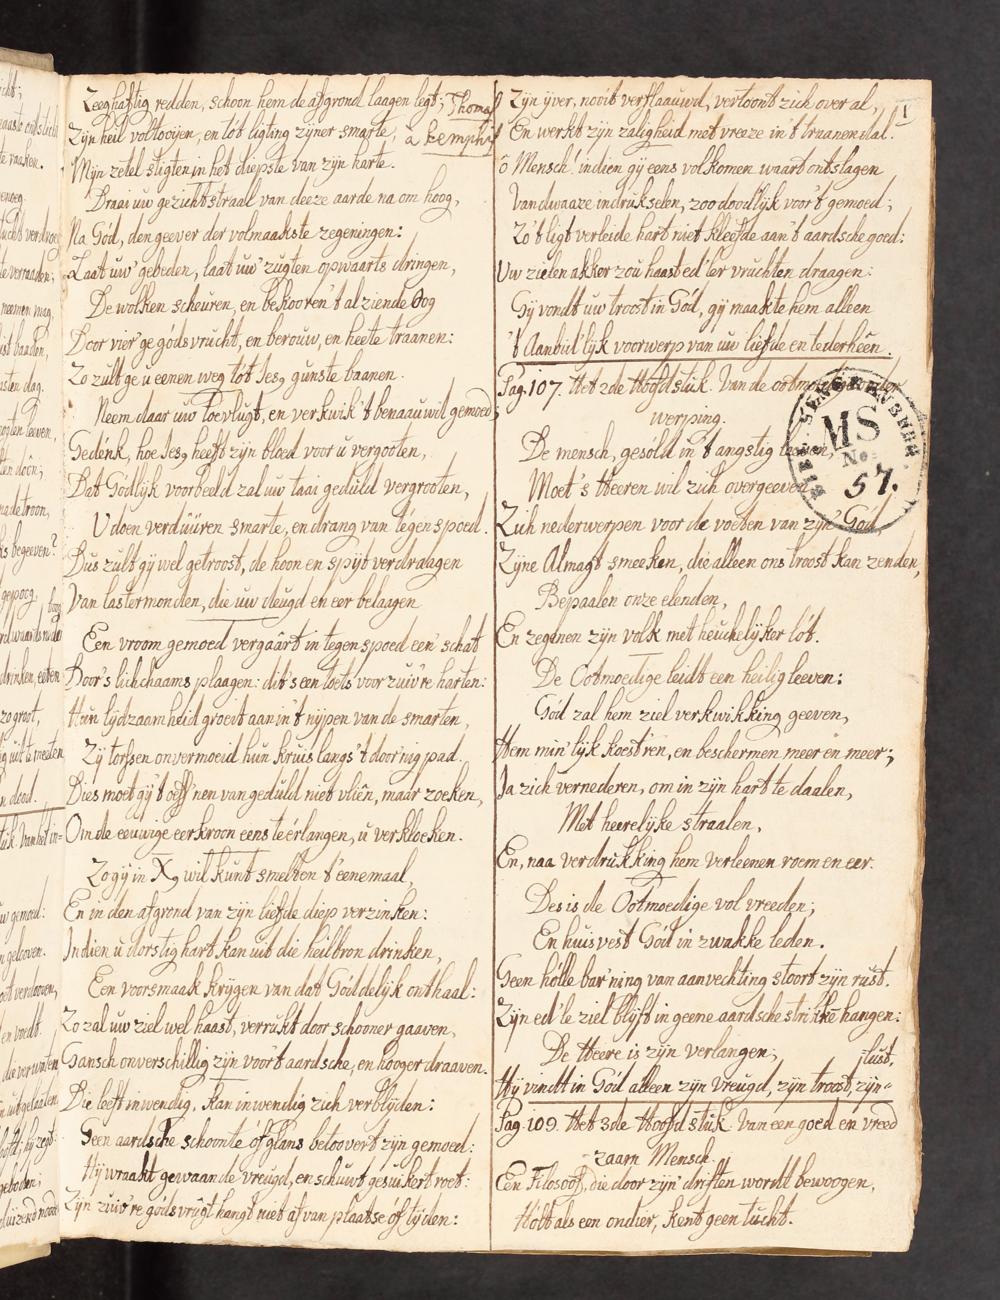 Zeeghaftig redden, schoon hem de afgrond laagen legt; Thomas
Zijn heil voltooijen, en tót ligting zijner smarte, à Kemphis
Mijn zetel stigten in het diepste van zijn harte.
Draai uw gezichtstraal van deeze aarde na om hoog,
Na Gód, den geever der volmaakste zegeningen:
Laat uw' gebeden, laat uw' zugten opwaarts dringen,
De wolken scheuren, en bekooren 't alziende Oog
Door vier'ge gódsvrucht, en berouw, en heete traanen:
Zo zult ge u eenen weg tot Jes, gunste baanen.
Neem daar uw toevlugt, en verkwik 't benaauwd gemoed;
Gedénk, hoe Jes, heeft zijn bloed voor u vergooten,
Dat Gódlijk voorbeeld zal uw taai geduld vergrooten,
U doen verdüüren smarte, en drang van tégenspoed.
Dus zult gij wel getroost, de hoon en spijt verdraagen
Van lastermonden, die uw deugd en eer belaagen
Een vroom gemoed vergaârt in tegenspoed een' schat
Door 's lichchaams plaagen: dit 's een toets voor zuiv're harten:
Hun lijdzaamheid groeit aan in 't nijpen van de smarten,
Zij torssen onvermoeid hun kruis langs 't door'nig pad.
Dies moet gij 't oeff'nen van geduld niet vliên, maar zoeken,
Om de eeuwige eerkroon eens te érlangen, u verkloeken.
Zo gij in X, wil kunt smelten t' eenemaal,
En in den afgrond van zijn liefde diep verzinken:
Indien u dorstig hart kan uit die heilbron drinken,
Een voorsmaak krijgen van dat Góddelijk onthaal:
Zo zal uw ziel wel haast, verrukt door schooner gaaven,
Gansch onverschillig zijn voor 't aardsche, en hooger draaven.
Die leeft inwendig, kan inwendig zich verblijden:
Geen aardsche schoonte óf glans betoovert zijn gemoed:
Hij wraakt gewaande vreugd, en schuwt gesuikert roet:
Zijn zuiv're gódsvrugt hangt niet af van plaatse óf tijden:
1
Zijn ijver, nooit verflaauwd, vertoont zich over al,
En werkt zijn zaligheid met vreeze in 't traanendal.
ô Mensch! indien gij eens volkomen waart ontslagen
Van dwaaze indrukselen, zoo doodlijk voor 't gemoed;
Zo 't ligt verleide hart niet kleefde aan 't aardsche goed:
Uw zielenakker zou haast ed'ler vruchten draagen:
Gij vondt uw troost in Gód, gij maakte hem alleen
't Aanbid'lijk voorwerp van uw liefde en tederheên.
Pag. 107. Het 2de Hoofdstuk. Van de ootmoedige onder
werping.
De mensch, gesóld in 't angstig leeven,
Moet 's Heeren wil zich overgeeven
Zich nederwerpen voor de voeten van zijn' Gód,
Zijne Almagt smeeken, die alleen ons troost kan zenden,
Bepaalen onze elenden,
En zegenen zijn volk met heuchelijker lót.
De Ootmoedige leidt een heilig leeven:
Gód zal hem zielverkwikking geeven,
Hem min'lijk koest'ren, en beschermen meer en meer;
Ja zich vernederen, om in zijn hart te daalen,
Met heerelijke straalen,
En, naa verdrukking hem verleenen roem en eer.
Des is de Ootmoedige vol vreeden;
En huisvest Gód in zwakke leden.
Geen hólle bar'ning van aanvechting stoort zijn rust.
Zijn ed'le ziel blijft in geene aardsche strikke hangen:
De Heere is zijn verlangen;
Hij vindt in Gód alleen zijn vreugd, zijn troost, zijn lust.
Pag. 109. Het 3de Hoofdstuk. Van een goed en vreed
zaam Mensch.
Een Filosoof, die door zijn' driften wordt bewoogen,
Hólt als een ondier, kent geen tucht.
MS
No:
57.